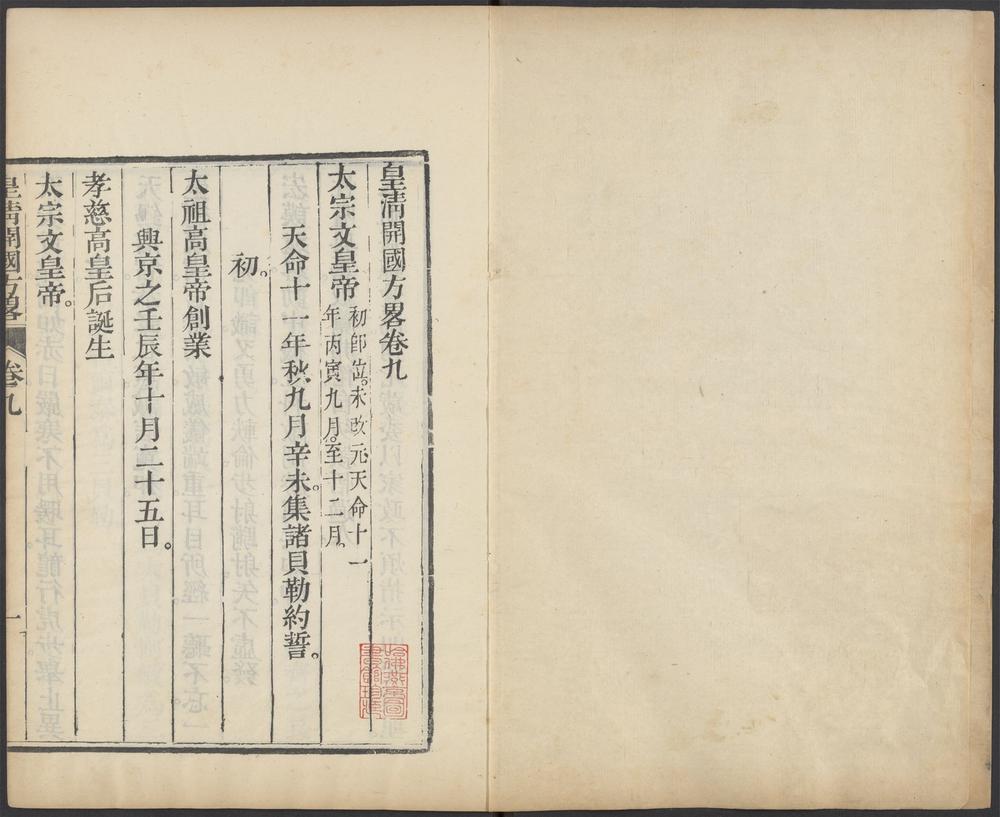 皇清開國方畧卷九
太宗文皇帝初卽位。未改元天命十一
年丙寅九月。至十二月。
天命十一年秋九月辛未。集諸貝勒約誓。
初。
太祖高皇帝創業
興京之壬辰年十月二十五日。
孝慈高皇后誕生
太宗文皇帝。
皇清開國方畧 卷九 一
哈佛燕京圖
書館珍藏